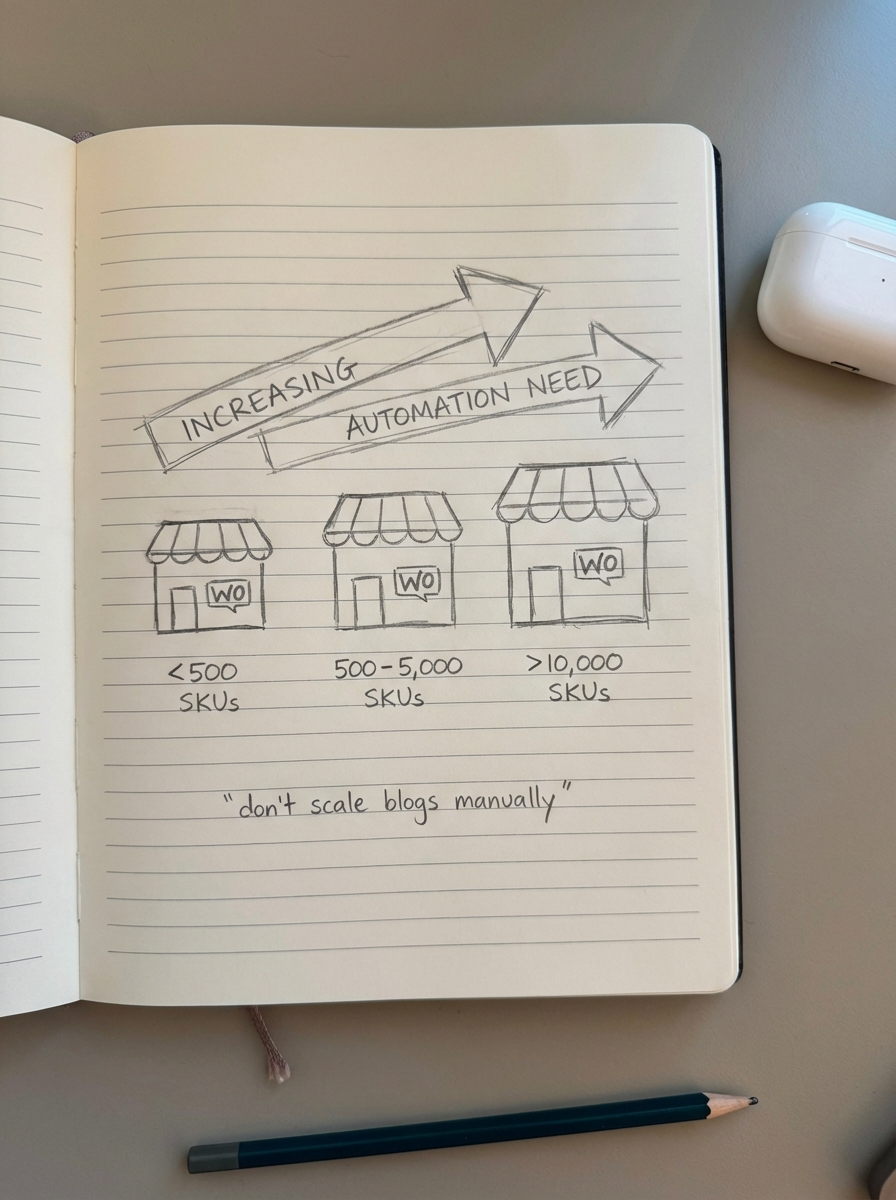 INCREASING
AUTOMATION NEED
WO
WO
WO
<500
SKUs
500-5,000
SKUs
>10,000
SKUs
"don't scale blogs manually"